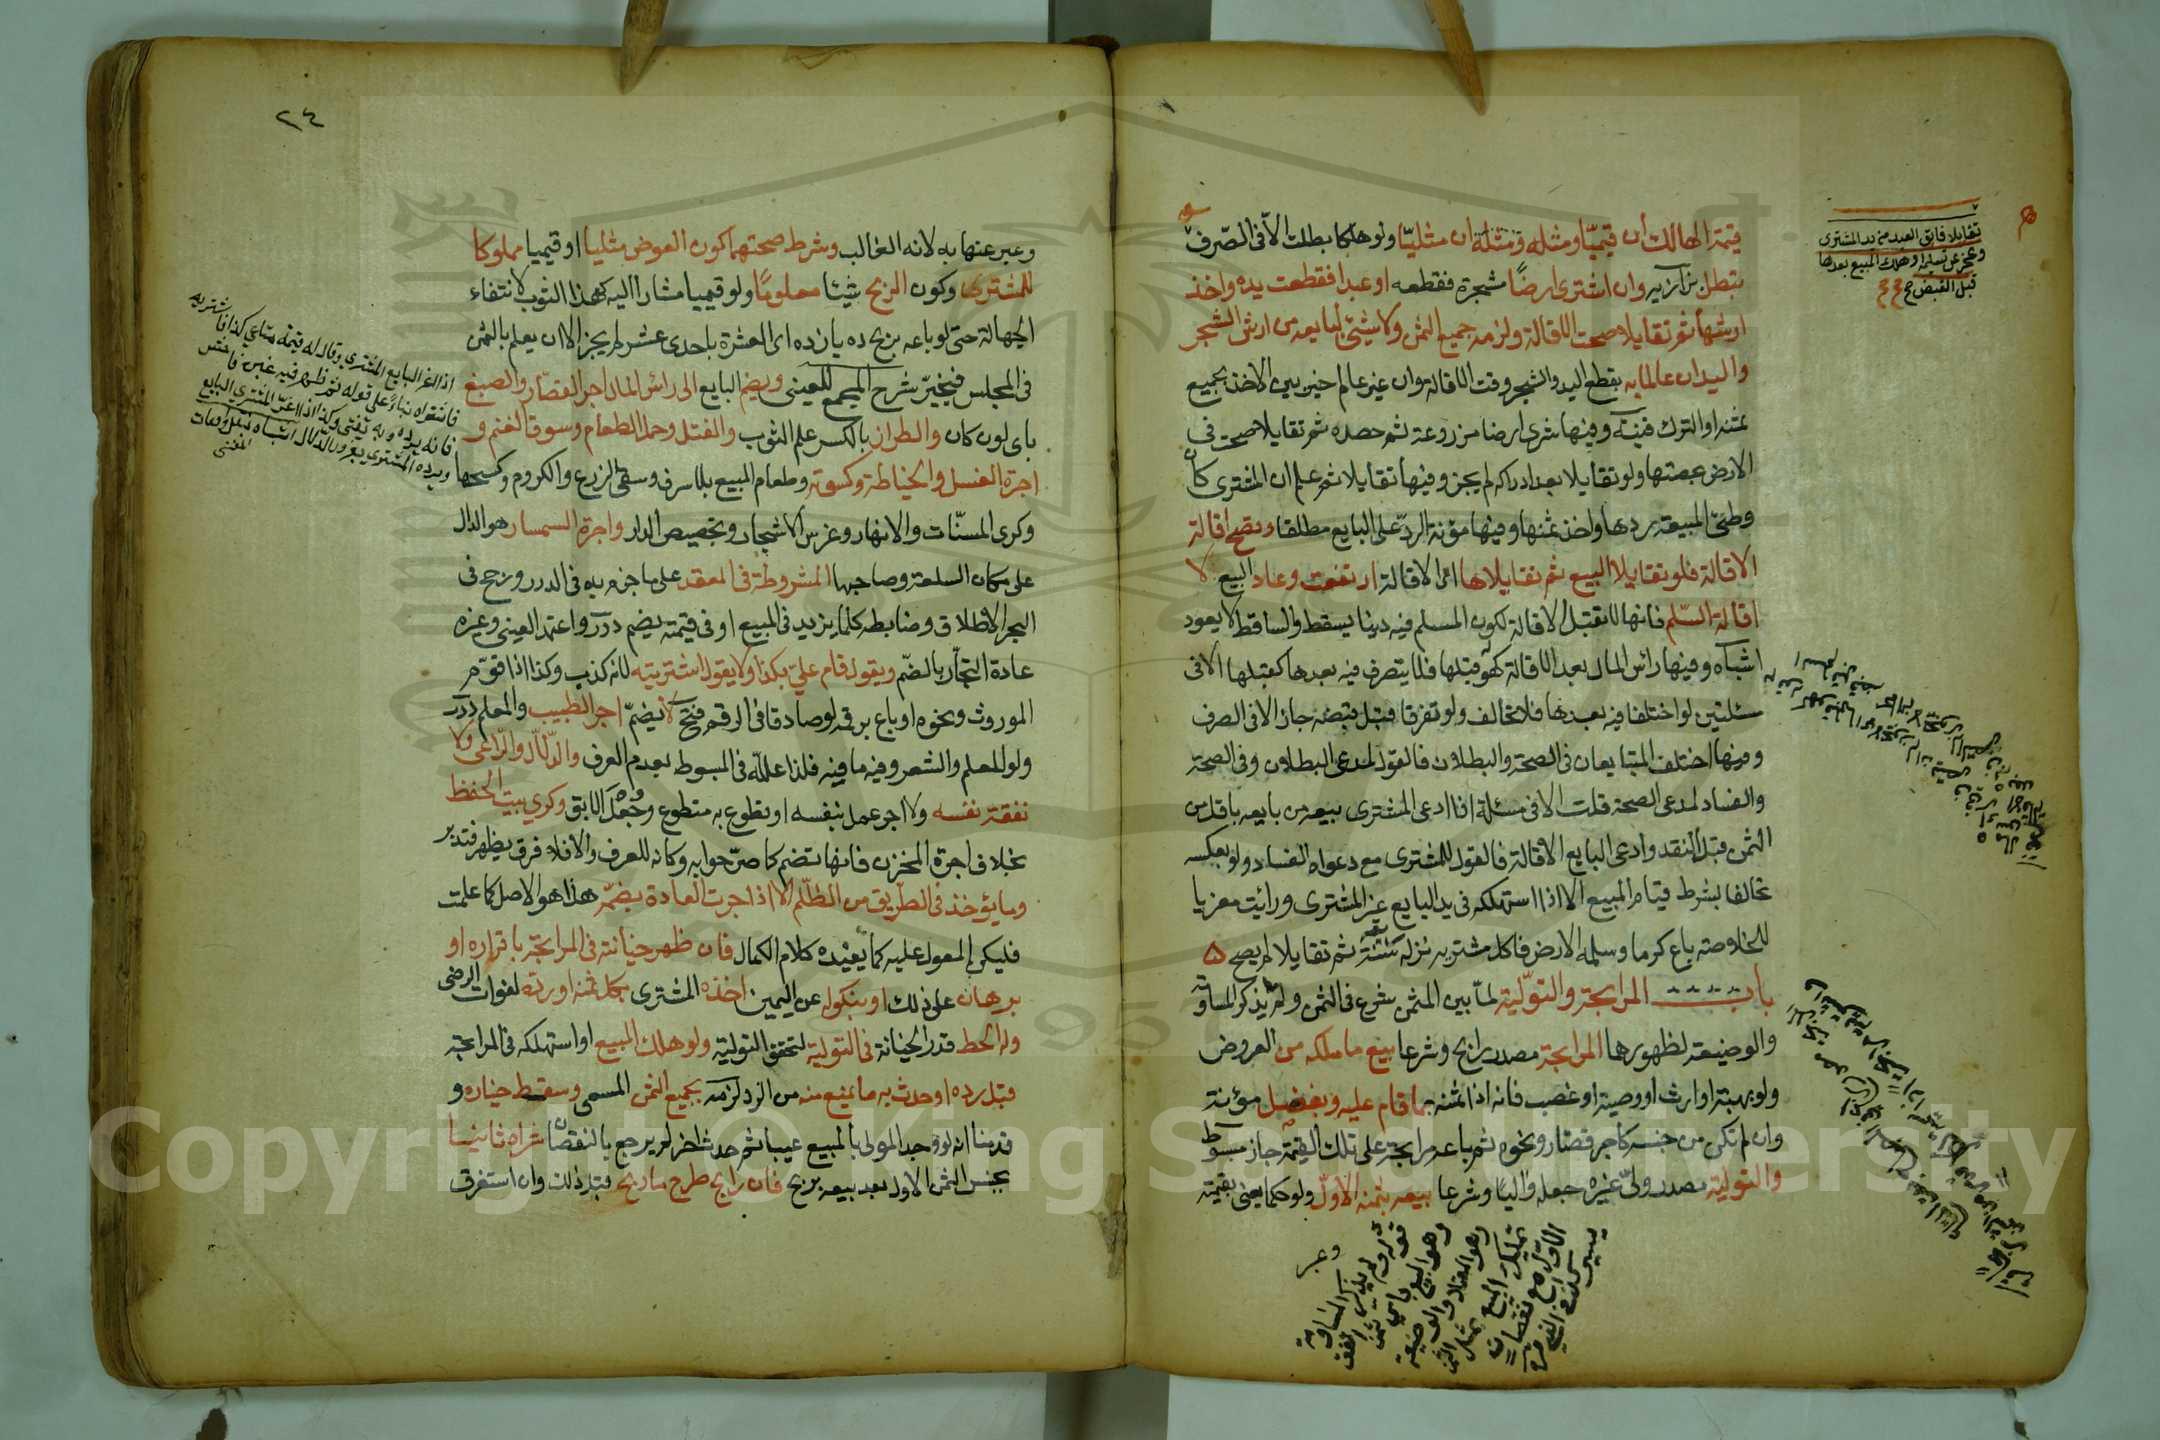 قيمة الهالك ان قيميا ومثله ومثله ان مثليا ولو هلكا بطلت الا في الصرف
تقايلا فابق العبد من يد المشتري
وعجز عن تسليمه او هلك المبيع بعدها
قبل القبض
بتبطل بزازيه وان اشترى ارضا مشجرة فقطعه او عبدا فقطعت يده واخذ
ارشها ثم تقايلا صحت الاقالة ولزمه جميع الثمن ولا شيء لبايعه من ارش الشجر
واليد ان عالما به بقطع اليد والشجر وقت الاقالة وان غير عالم خير بين الاخذ بجميع
ثمنه او الترك قنيه وفيها شرى ارضا مزروعة ثم حصده ثم تقايلا صحت في
الارض بحصتها ولو تقايلا بعد ادراكه لم يجز وفيها تقايلا ثم علم ان المشتري كان
وطئ المبيعة ردها واخذ ثمنها وفيها مؤنة الرد على البايع مطلقا وتصح اقالة
الاقالة فلو تقايلا البيع ثم تقايلاها اي الاقالة ارتفعت وعاد البيع لا
اقالة السلم فانها لا تقبل الاقالة لكون المسلم فيه دينا يسقط والساقط لا يعود
اشباه وفيها راس المال بعد الاقالة كهو قبلها فلا يتصرف فيه بعدها كقبلها الا في
مسئلتين لو اختلفا فيه بعدها فلا تخالف ولو تفرقا قبل قبضه جاز الا في الصرف
وفيها اختلف المتبايعان في الصحة والبطلان فالقول لمدعي البطلان وفي الصحة
والفساد لمدعي الصحة قلت الا في مسئلة اذا ادعى المشتري بيعه من بايعه باقل من
الثمن قبل النقد وادعى البايع الاقالة فالقول للمشتري مع دعواه الفساد ولو بعكسه
تحالفا بشرط قيام المبيع الا اذا استهلكه في يد البايع غير المشتري ورايت معزيا
للخلاصة باع كرما وسلمه الارض فاكل مشتريه نزله سنة ثم تقايلا لم يصح
باب المرابحة والتولية لما بين المثمن شرع في الثمن ولم يذكر المساومة
والوضيعة لظهورها المرابحة مصدر رابح وشرعا بيع ما ملكه من العروض
ولو بهبة او ارث او وصية او غصب فانه اذا ثمنه بما قام عليه وبفضل مؤنة
وان لم تكن من جنسه كاجر قصار ونحوه ثم باعه مرابحة على تلك القيمة جاز مبسوط
والتولية مصدر ولى غيره جعله واليا وشرعا بيعه بثمنه الاول ولو حكما يعني بقيمته
وعبر
٢٤
وعبر عنها به لانه الغالب وشرط صحتهما كون العوض مثليا او قيميا مملوكا
للمشتري وكون الربح شيئا معلوما ولو قيميا مشارا اليه كهذا الثوب لانتفاء
الجهالة حتى لو باعه بربح ده يازده اي العشرة باحدى عشر لم يجز الا ان يعلم بالثمن
في المجلس فيخير شرح المجمع للعيني ويضم البايع الى راس المال اجر القصار والصبغ
باي لون كان والطراز بالكسر علم الثوب والفتل وحمل الطعام وسوق الغنم و
اجرة الغسل والخياطة وكسوته وطعام المبيع بلا سرف وسقي الزرع والكروم وكسحها
وكري المسنات والانهار وغرس الاشجار وتجصيص الدار واجرة السمسار هو الدال
على مكان السلعة وصاحبها المشروطة في العقد على ما جزم به في الدرر ورجح في
البحر الاطلاق وضابطه كلما يزيد في المبيع او في قيمته يضم درر واعتمد العيني وغيره
عادة التجار بالضم ويقول قام علي بكذا ولا يقول اشتريته لانه كذب وكذا اذا قوم
الموروث ونحوه او باع برقمه لو صادقا في الرقم فتح لا يضم اجر الطبيب والمعلم درر
ولو للعلم والشعر وفيه ما فيه فلذا علله في المبسوط بعدم العرف والدلال والراعي ولا
نفقة نفسه ولا اجر عمل بنفسه او تطوع به متطوع وجعل الابق وكري بيت الحفظ
بخلاف اجرة المخزن فانها تضم كما صرحوا به وكانه للعرف والا فلا فرق يظهر فتدبر
وما يؤخذ في الطريق من الظلم الا اذا جرت العادة بضمه هذا هو الاصل كما علمت
فليكن المعول عليه كما يفيده كلام الكمال فان ظهر خيانته في المرابحة باقراره او
برهان على ذلك او بنكوله عن اليمين اخذه المشتري بكل ثمنه او رده لفوات الرضى
وله الحط قدر الخيانة في التولية لتحقق التولية ولو هلك المبيع او استهلكه في المرابحة
قبل رده او حدث به ما يمنع منه من الرد لزمه بجميع الثمن المسمى وسقط خياره و
قدمنا انه لو وجد المولى بالمبيع عيبا ثم حدث اخر لم يرجع بالنقصان شراه ثانيا
بجنس الثمن الاول بعد بيعه بربح فان رابح طرح ما ربح قبل ذلك وان استغرق
اذا اغر البايع المشتري وقال له قيمة متاعي كذا فاشتريه
فاشتراه بناء على قوله ثم ظهر فيه غبن فاحش
فانه يرده وبه يفتى وكذا اذا غر المشتري البايع
ويرده المشتري بغرور الدلال اشباه